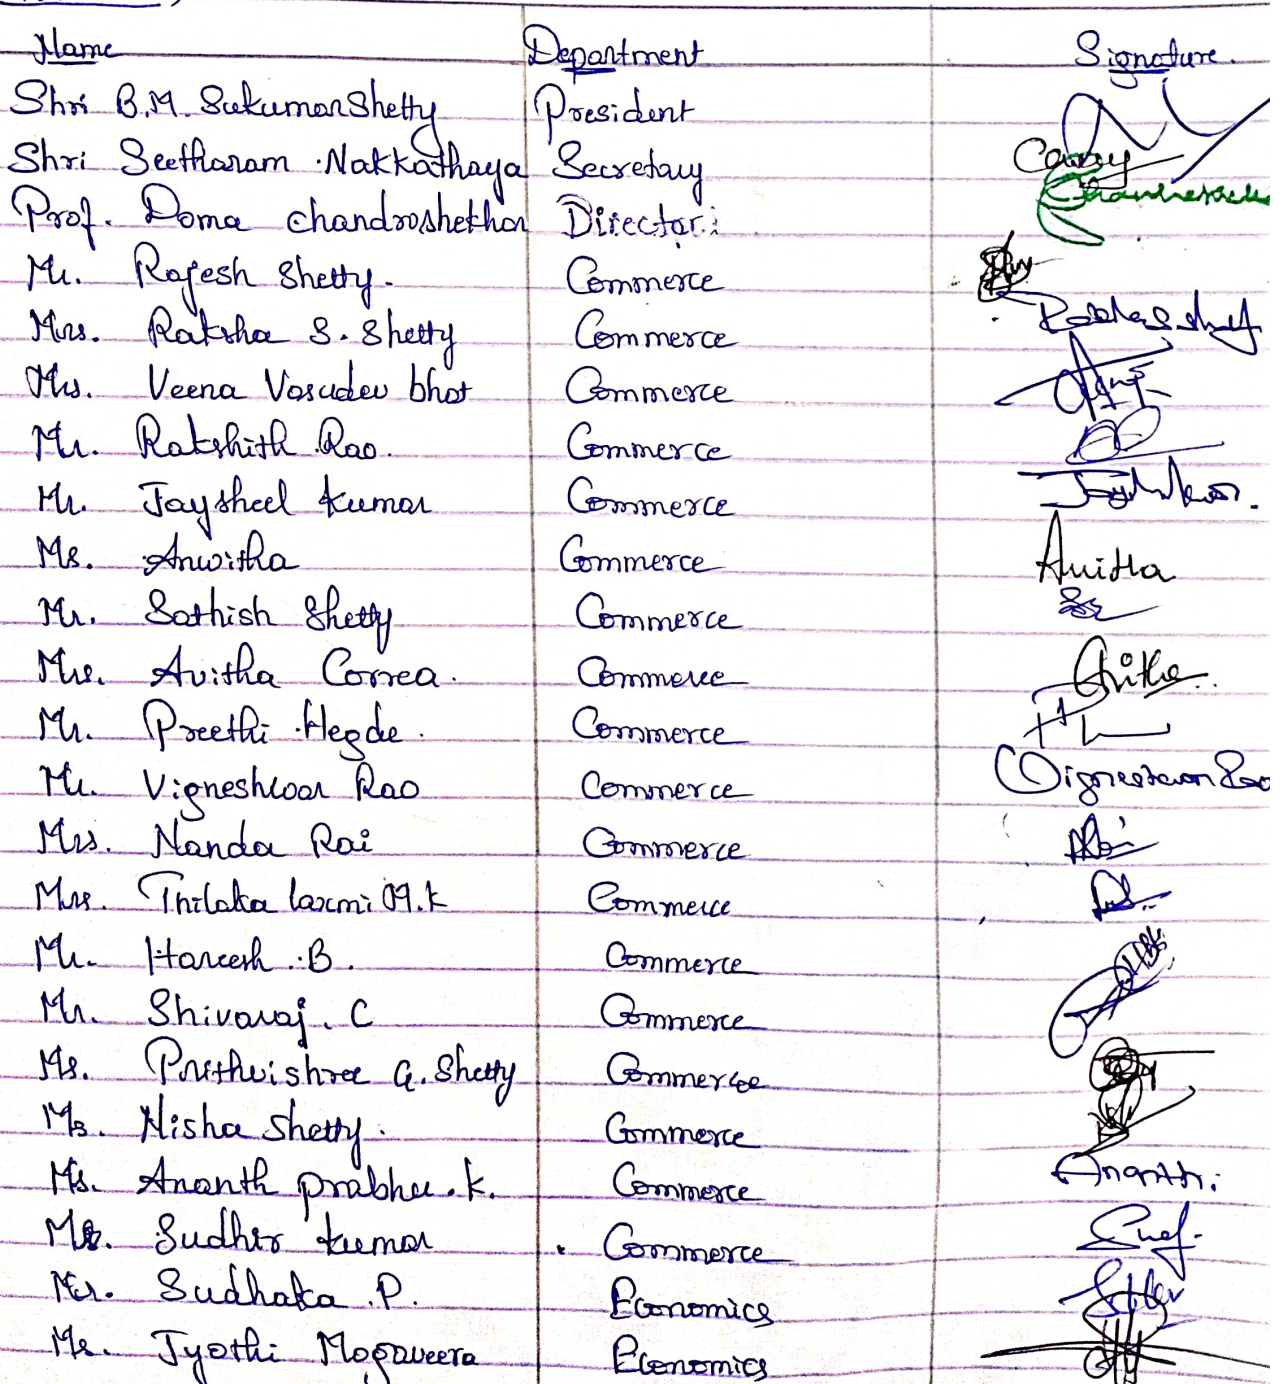 Name Department Signature.
Shri B.M. Sukumar Shetty President
Shri Seetharam Nakkathaya Secretary
Prof. Doma chandrashekhar Director
Mr. Rajesh Shetty. Commerce
Mrs. Raksha S. Shetty Commerce
Mrs. Veena Vasudev bhat Commerce
Mr. Rakshith Rao. Commerce
Mr. Jaysheel kumar Commerce
Ms. Anwitha Commerce Anitha
Mr. Sathish Shetty Commerce
Mrs. Avitha Correa. Commerce
Mr. Preethi Hegde. Commerce
Mr. Vigneshwar Rao Commerce Vigneshwar Rao
Mrs. Nanda Rai Commerce
Mrs. Thilaka laxmi M.k Commerce
Mr. Hareesh B. Commerce
Mr. Shivaraj. C Commerce
Ms. Prithvishree G. Shetty Commerce
Ms. Nisha Shetty. Commerce
Ms. Ananth prabhu.k. Commerce Ananth
Mr. Sudhir kumar Commerce
Mr. Sudhaka .P. Economics
Ms. Jyothi Mogaveera Economics